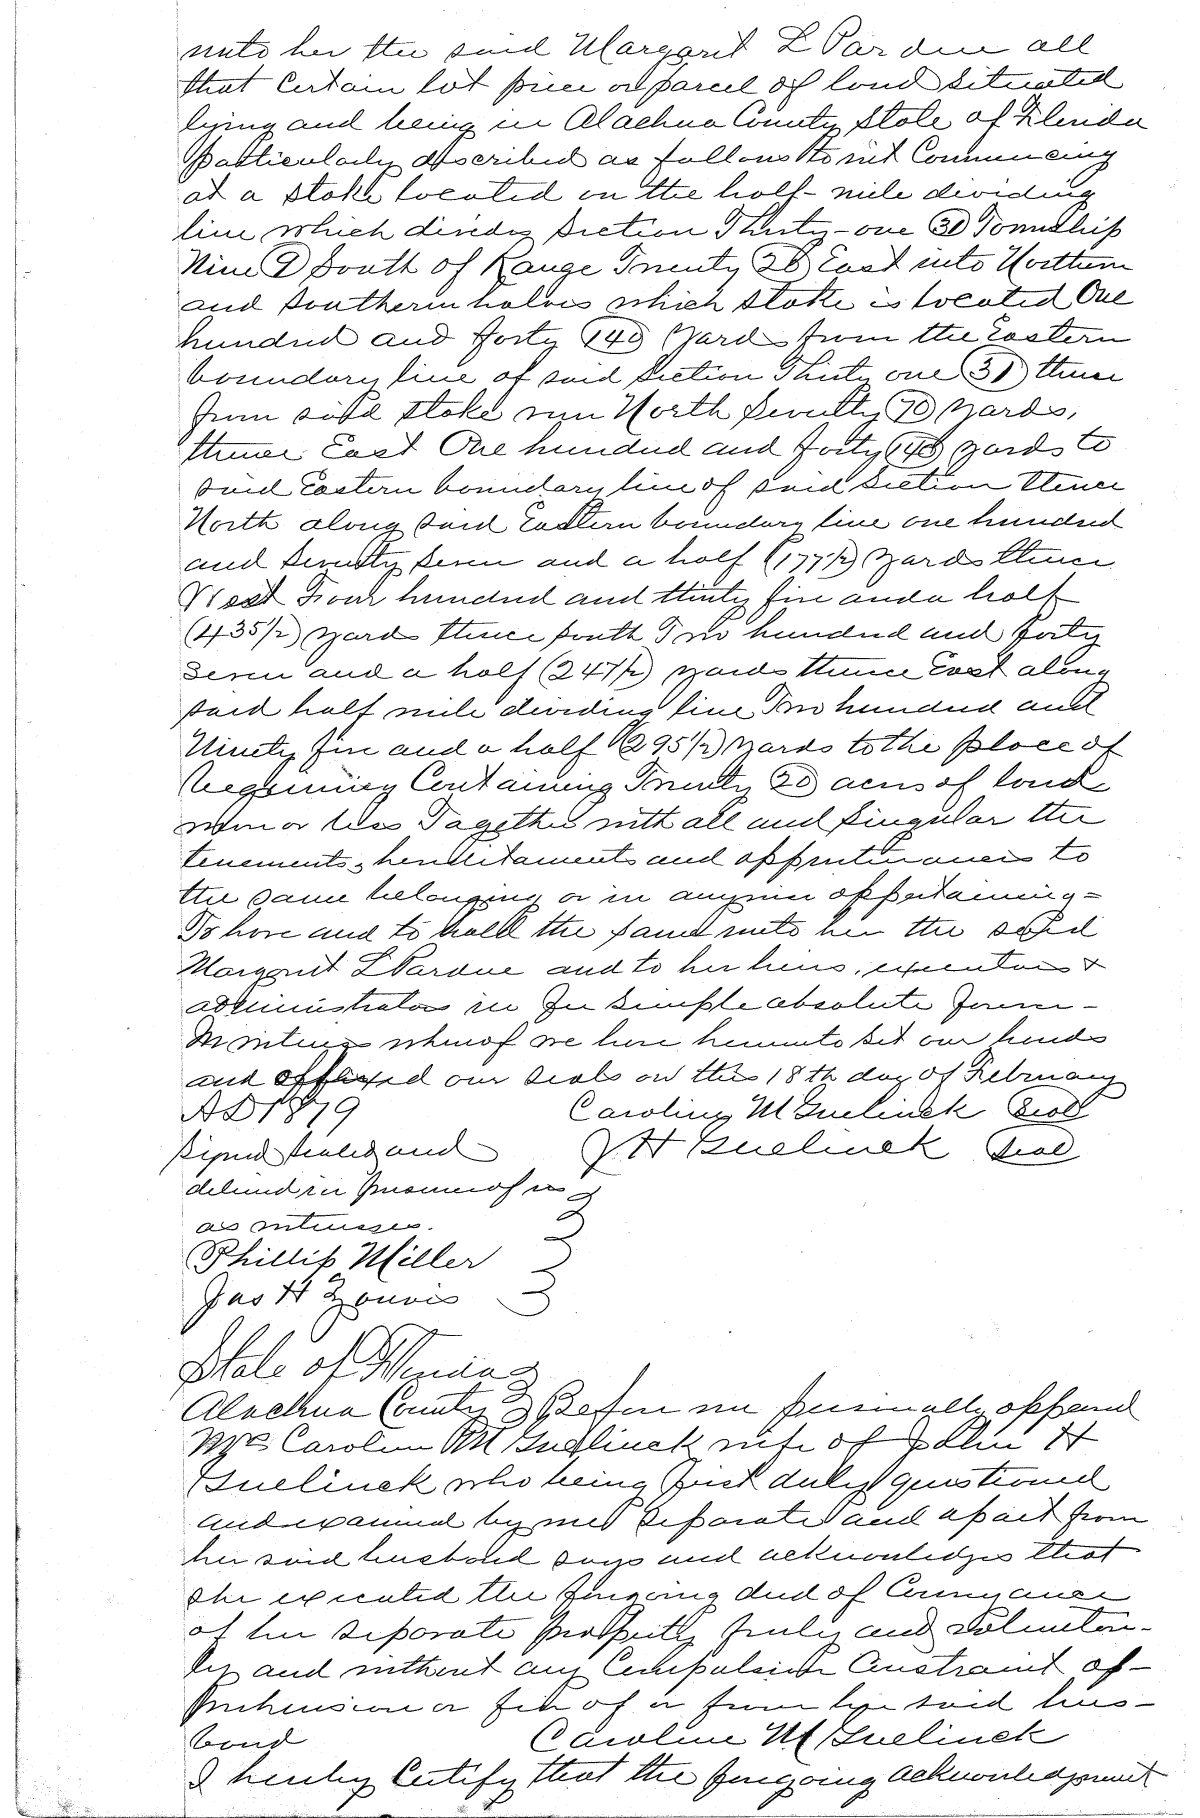 unto her the said Margaret L Pardue all
that Certain lot piece or parcel of land situated
lying and being in Alachua County State of Florida
particularly described as follows to wit Commencing
at a stake located on the half-mile dividing
line which divides Section Thirty-one 31 Township
Nine 9 South of Range Twenty 20 East into Northern
and Southern halves which stake is located One
hundred and forty 140 yards from the Eastern
boundary line of said Section Thirty one 31 thence
from said stake run North Seventy 70 yards,
thence East One hundred and forty 140 yards to
said Eastern boundary line of said Section thence
North along said Eastern boundary line one hundred
and Seventy Seven and a half (177½) yards thence
West Four hundred and thirty five and a half
(435½) yards thence South Two hundred and forty
seven and a half (247½) yards thence East along
said half mile dividing line Two hundred and
Ninety five and a half (295½) yards to the place of
beginning Containing Twenty 20 acres of land
more or less Together with all and Singular the
tenements, hereditaments and appurtenances to
the same belonging or in anywise appertaining=
To have and to hold the same unto her the said
Margaret L Pardue and to her heirs, executors &
administrators in fee simple absolute forever-
In witness whereof we have hereunto set our hands
and affixed our seals on this 18th day of February
AD 1879 Caroline M Guelinck Seal
Signed sealed and J H Guelinck Seal
delivered in presence of us
as witnesses.
Phillip Miller
Jas H
State of Florida
Alachua County Before me personally appeared
Mrs Caroline M Guelinck wife of John H
Guelinck who being first duly questioned
and examined by me separate and apart from
her said husband says and acknowledges that
she executed the foregoing deed of Conveyance
of her separate property freely and voluntari-
ly and without any Compulsion Constraint ap-
prehension or fear of or from her said hus-
band Caroline M Guelinck
I hereby Certify that the foregoing acknowledgment